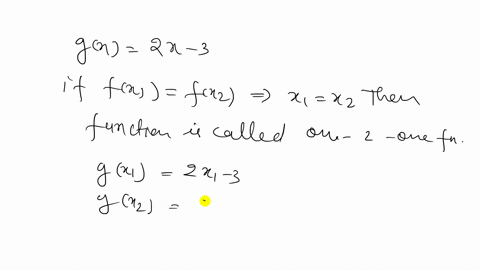 g(x) = 2x-3
if f(x1) = f(x2) => x1 = x2 Then
function is called one-2-one fn.
g(x1) = 2x1-3
g(x2) =